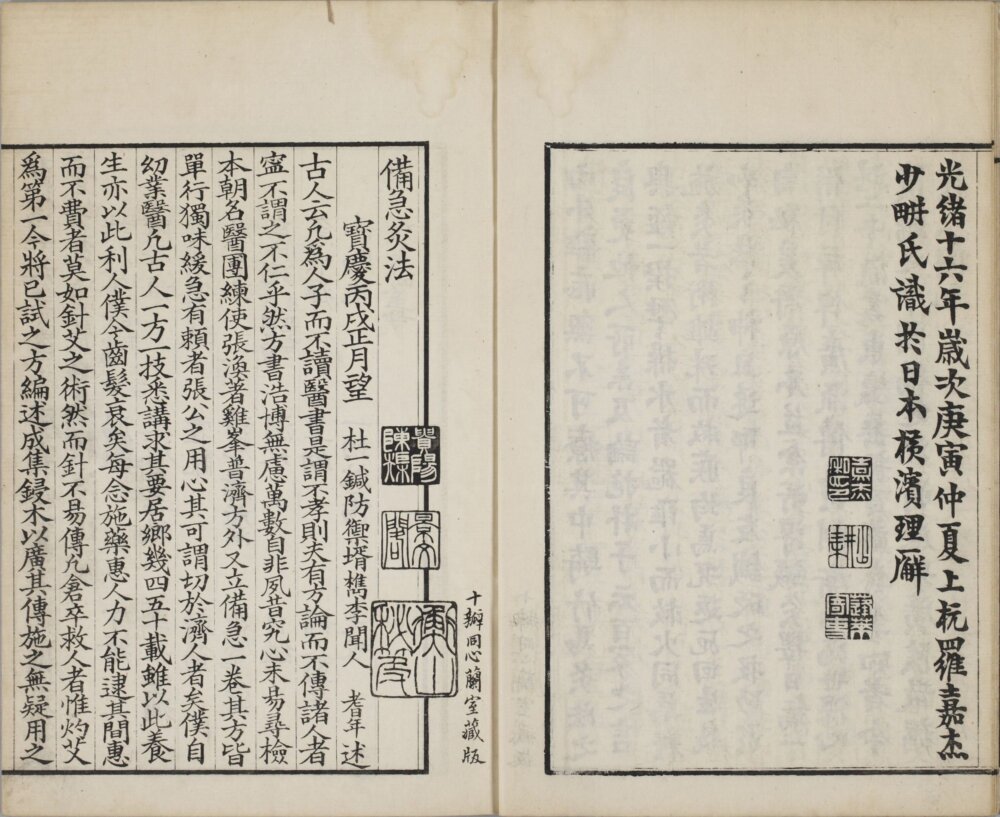 光緒十六年歲次庚寅仲夏上杭羅嘉杰
少畊氏識於日本橫濱理廨
十瓣同心蘭室藏版
備急灸法
寶慶丙戌正月望 杜一鍼防禦壻檇李聞人 耆年 述
古人云凡爲人子而不讀醫書是謂不孝則夫有方論而不傳諸人者
寍不謂之不仁乎然方書浩博無慮萬數自非夙昔究心未易尋檢
本朝名醫團練使張渙著雞峯普濟方外又立備急一卷其方皆
單行獨味緩急有賴者張公之用心其可謂切於濟人者矣僕自
幼業醫凡古人一方一技悉講求其要居鄉幾四五十載雖以此養
生亦以此利人僕今齒髮衰矣每念施藥惠人力不能逮其間惠
而不費者莫如針艾之術然而針不易傳凡倉卒救人者惟灼艾
爲第一今將已試之方編述成集鋟木以廣其傳施之無疑用之